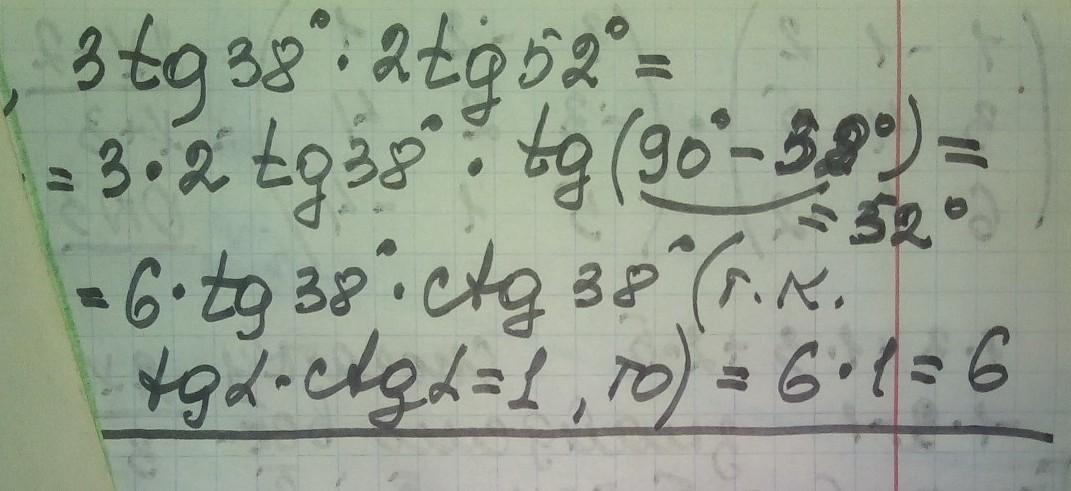 3 tg 38° · 2 tg 52° =
= 3 · 2 tg 38° · tg (90° - 38°) =
= 52°
= 6 · tg 38° · ctg 38° (т.к.
tg α · ctg α = 1, то) = 6 · 1 = 6